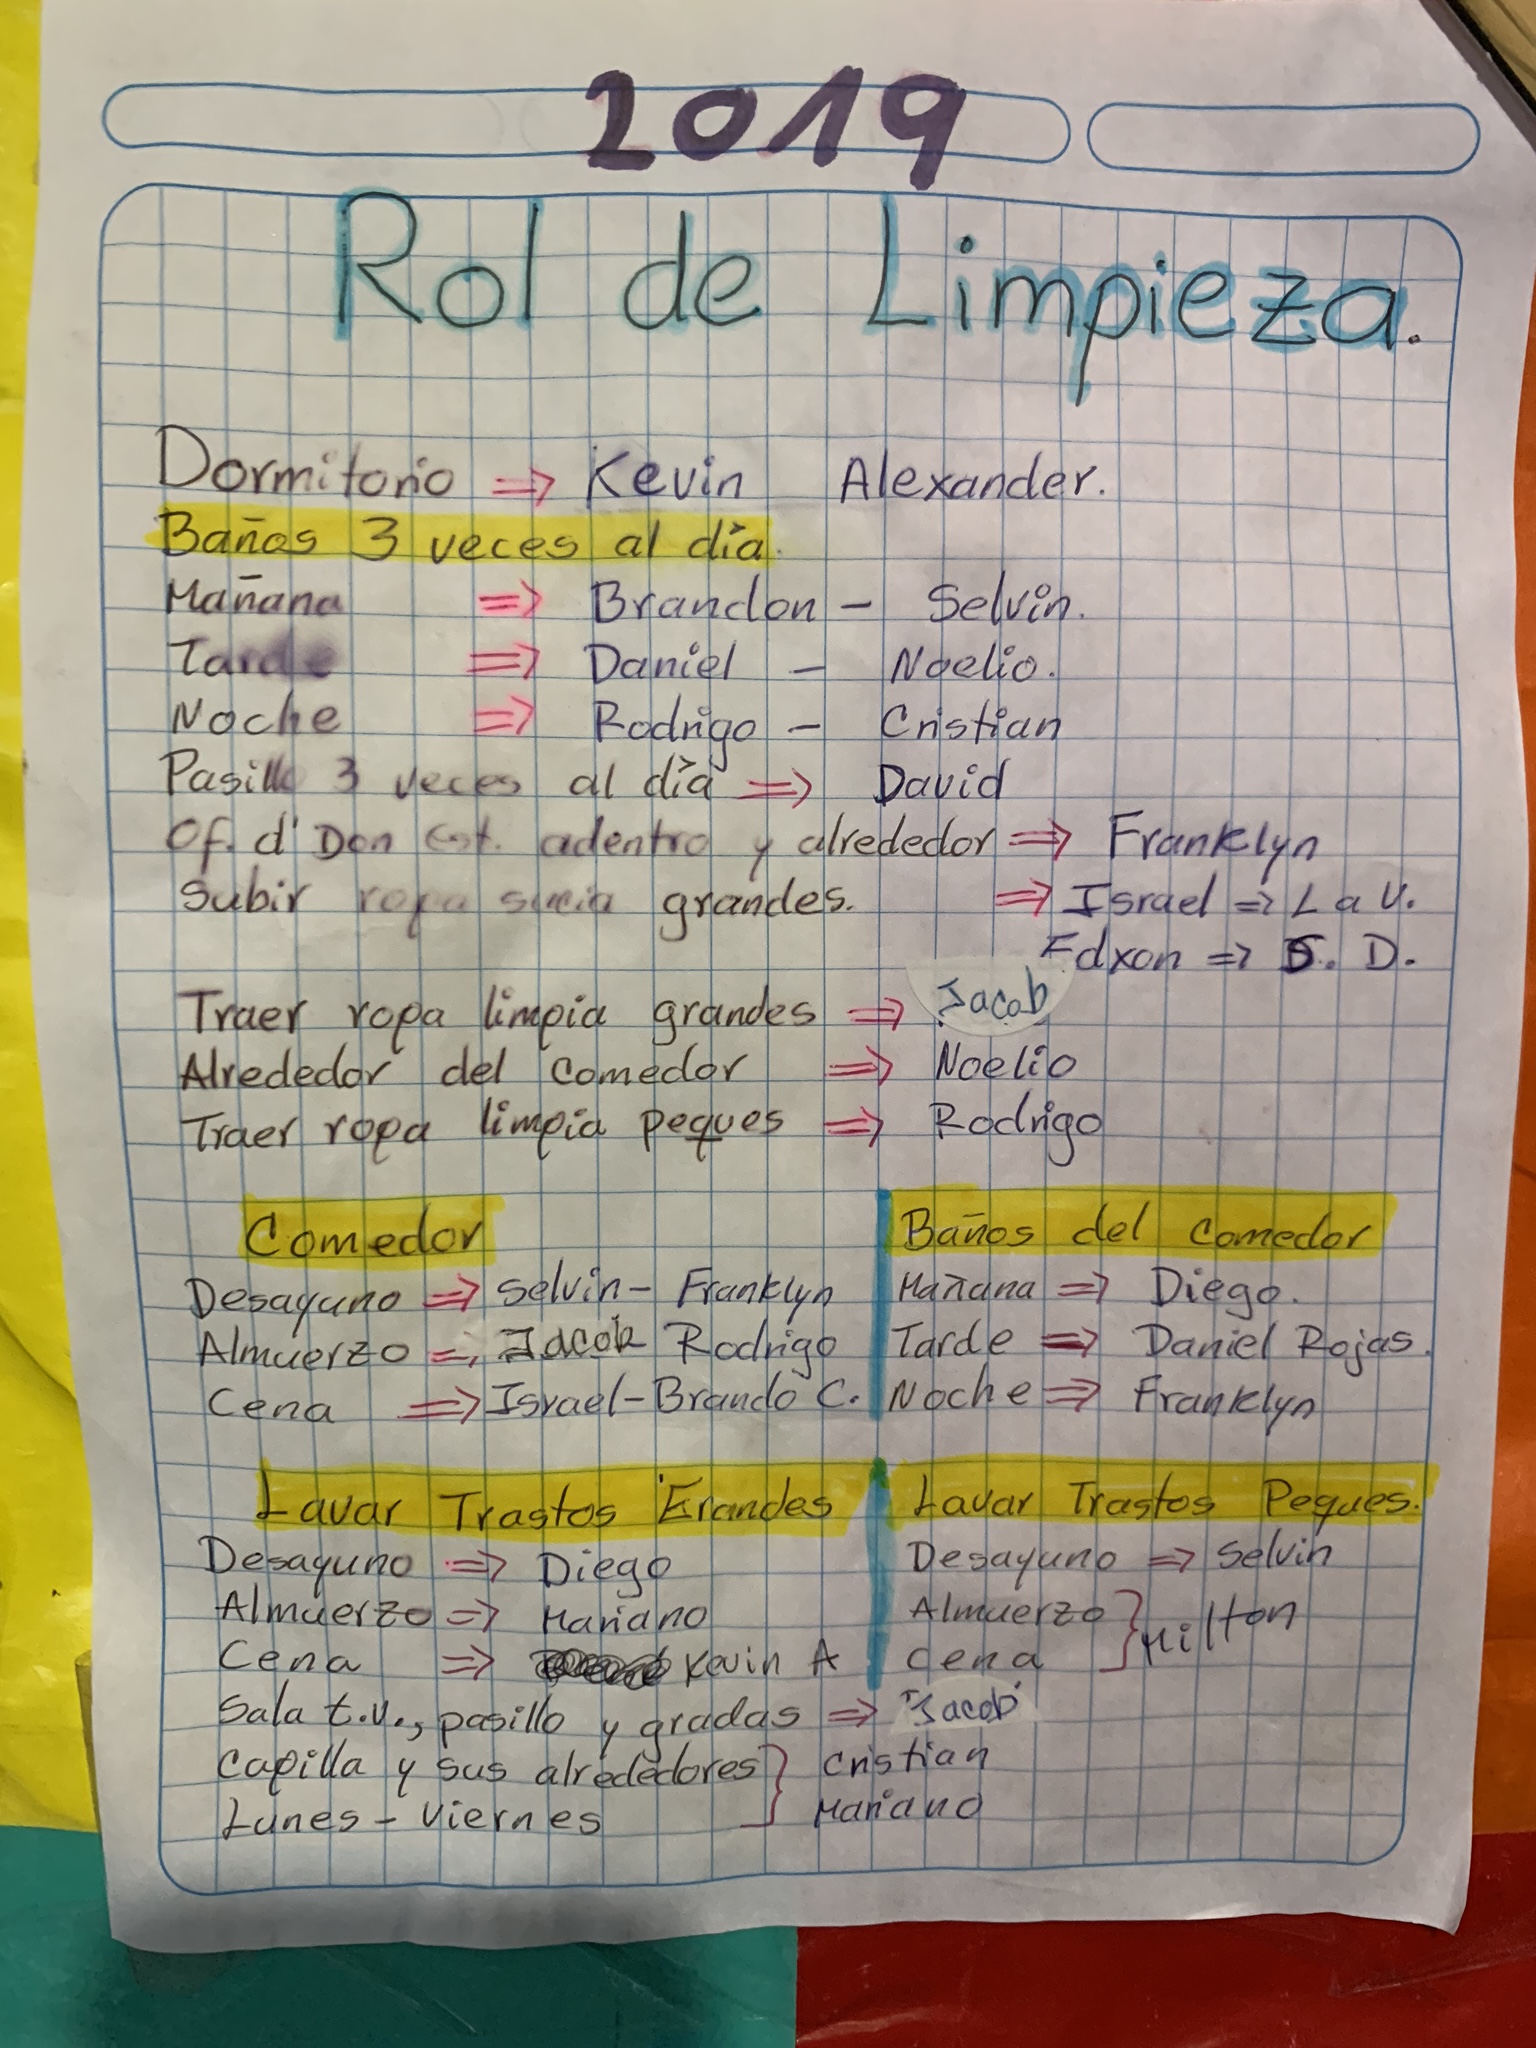 2019
Rol de Limpieza.
Dormitorio ⇒ Kevin Alexander.
Baños 3 veces al día.
Mañana ⇒ Brandon - Selvin.
Tarde ⇒ Daniel - Noelio.
Noche ⇒ Rodrigo - Cristian
Pasillo 3 veces al día ⇒ David
Of. d' Don Est. adentro y alrededor ⇒ Franklyn
Subir ropa sucia grandes. ⇒ Israel ⇒ L a V.
Edxon ⇒ S. D.
Traer ropa limpia grandes ⇒ Jacob
Alrededor del Comedor ⇒ Noelio
Traer ropa limpia peques ⇒ Rodrigo
Comedor
Desayuno ⇒ Selvin - Franklyn
Almuerzo ⇒ Jacob Rodrigo
Cena ⇒ Israel - Brando C.
Baños del Comedor
Mañana ⇒ Diego.
Tarde ⇒ Daniel Rojas.
Noche ⇒ Franklyn
Lavar Trastos Grandes
Desayuno ⇒ Diego
Almuerzo ⇒ Mariano
Cena ⇒ Kevin A
Lavar Trastos Peques.
Desayuno ⇒ Selvin
Almuerzo } Milton
Cena
Sala t.v., pasillo y gradas ⇒ Jacob
Capilla y sus alrededores } Cristian
Lunes - Viernes Mariano